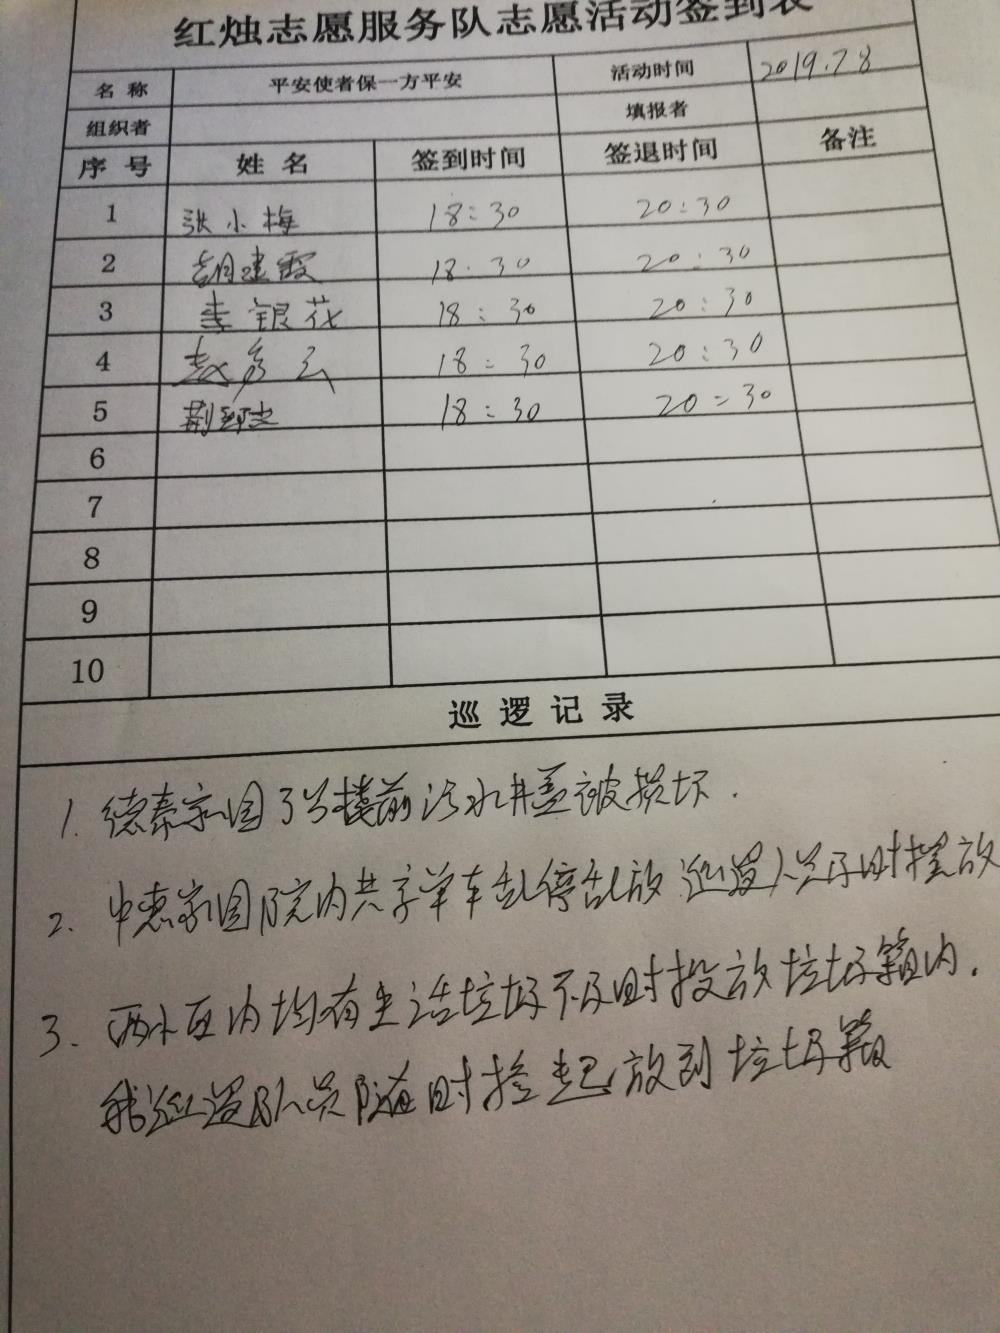 红烛志愿服务队志愿活动签到表
名 称 平安使者保一方平安 活动时间 2019.7.8
组织者 填报者
序 号 姓 名 签到时间 签退时间 备注
1 张小梅 18:30 20:30
2 胡建霞 18:30 20:30
3 李银花 18:30 20:30
4 赵彦云 18:30 20:30
5 荆 18:30 20:30
6
7
8
9
10
巡 逻 记 录
1. 德泰家园3号楼前污水井盖被损坏.
2. 中惠家园院内共享单车乱停乱放 巡逻人员及时摆放
3. 两小区内均有生活垃圾不及时投放垃圾箱内.
我巡逻队人员随时捡起放到垃圾箱